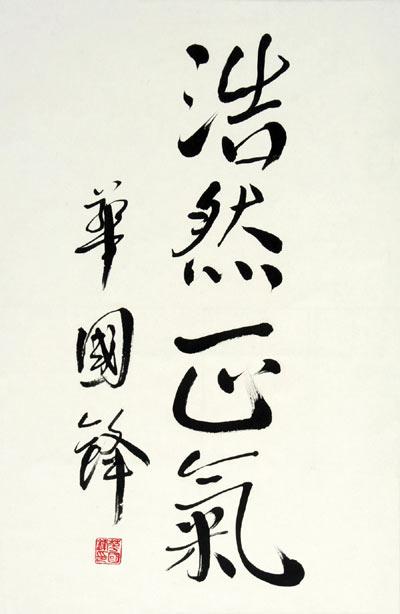 浩然正氣
華國鋒